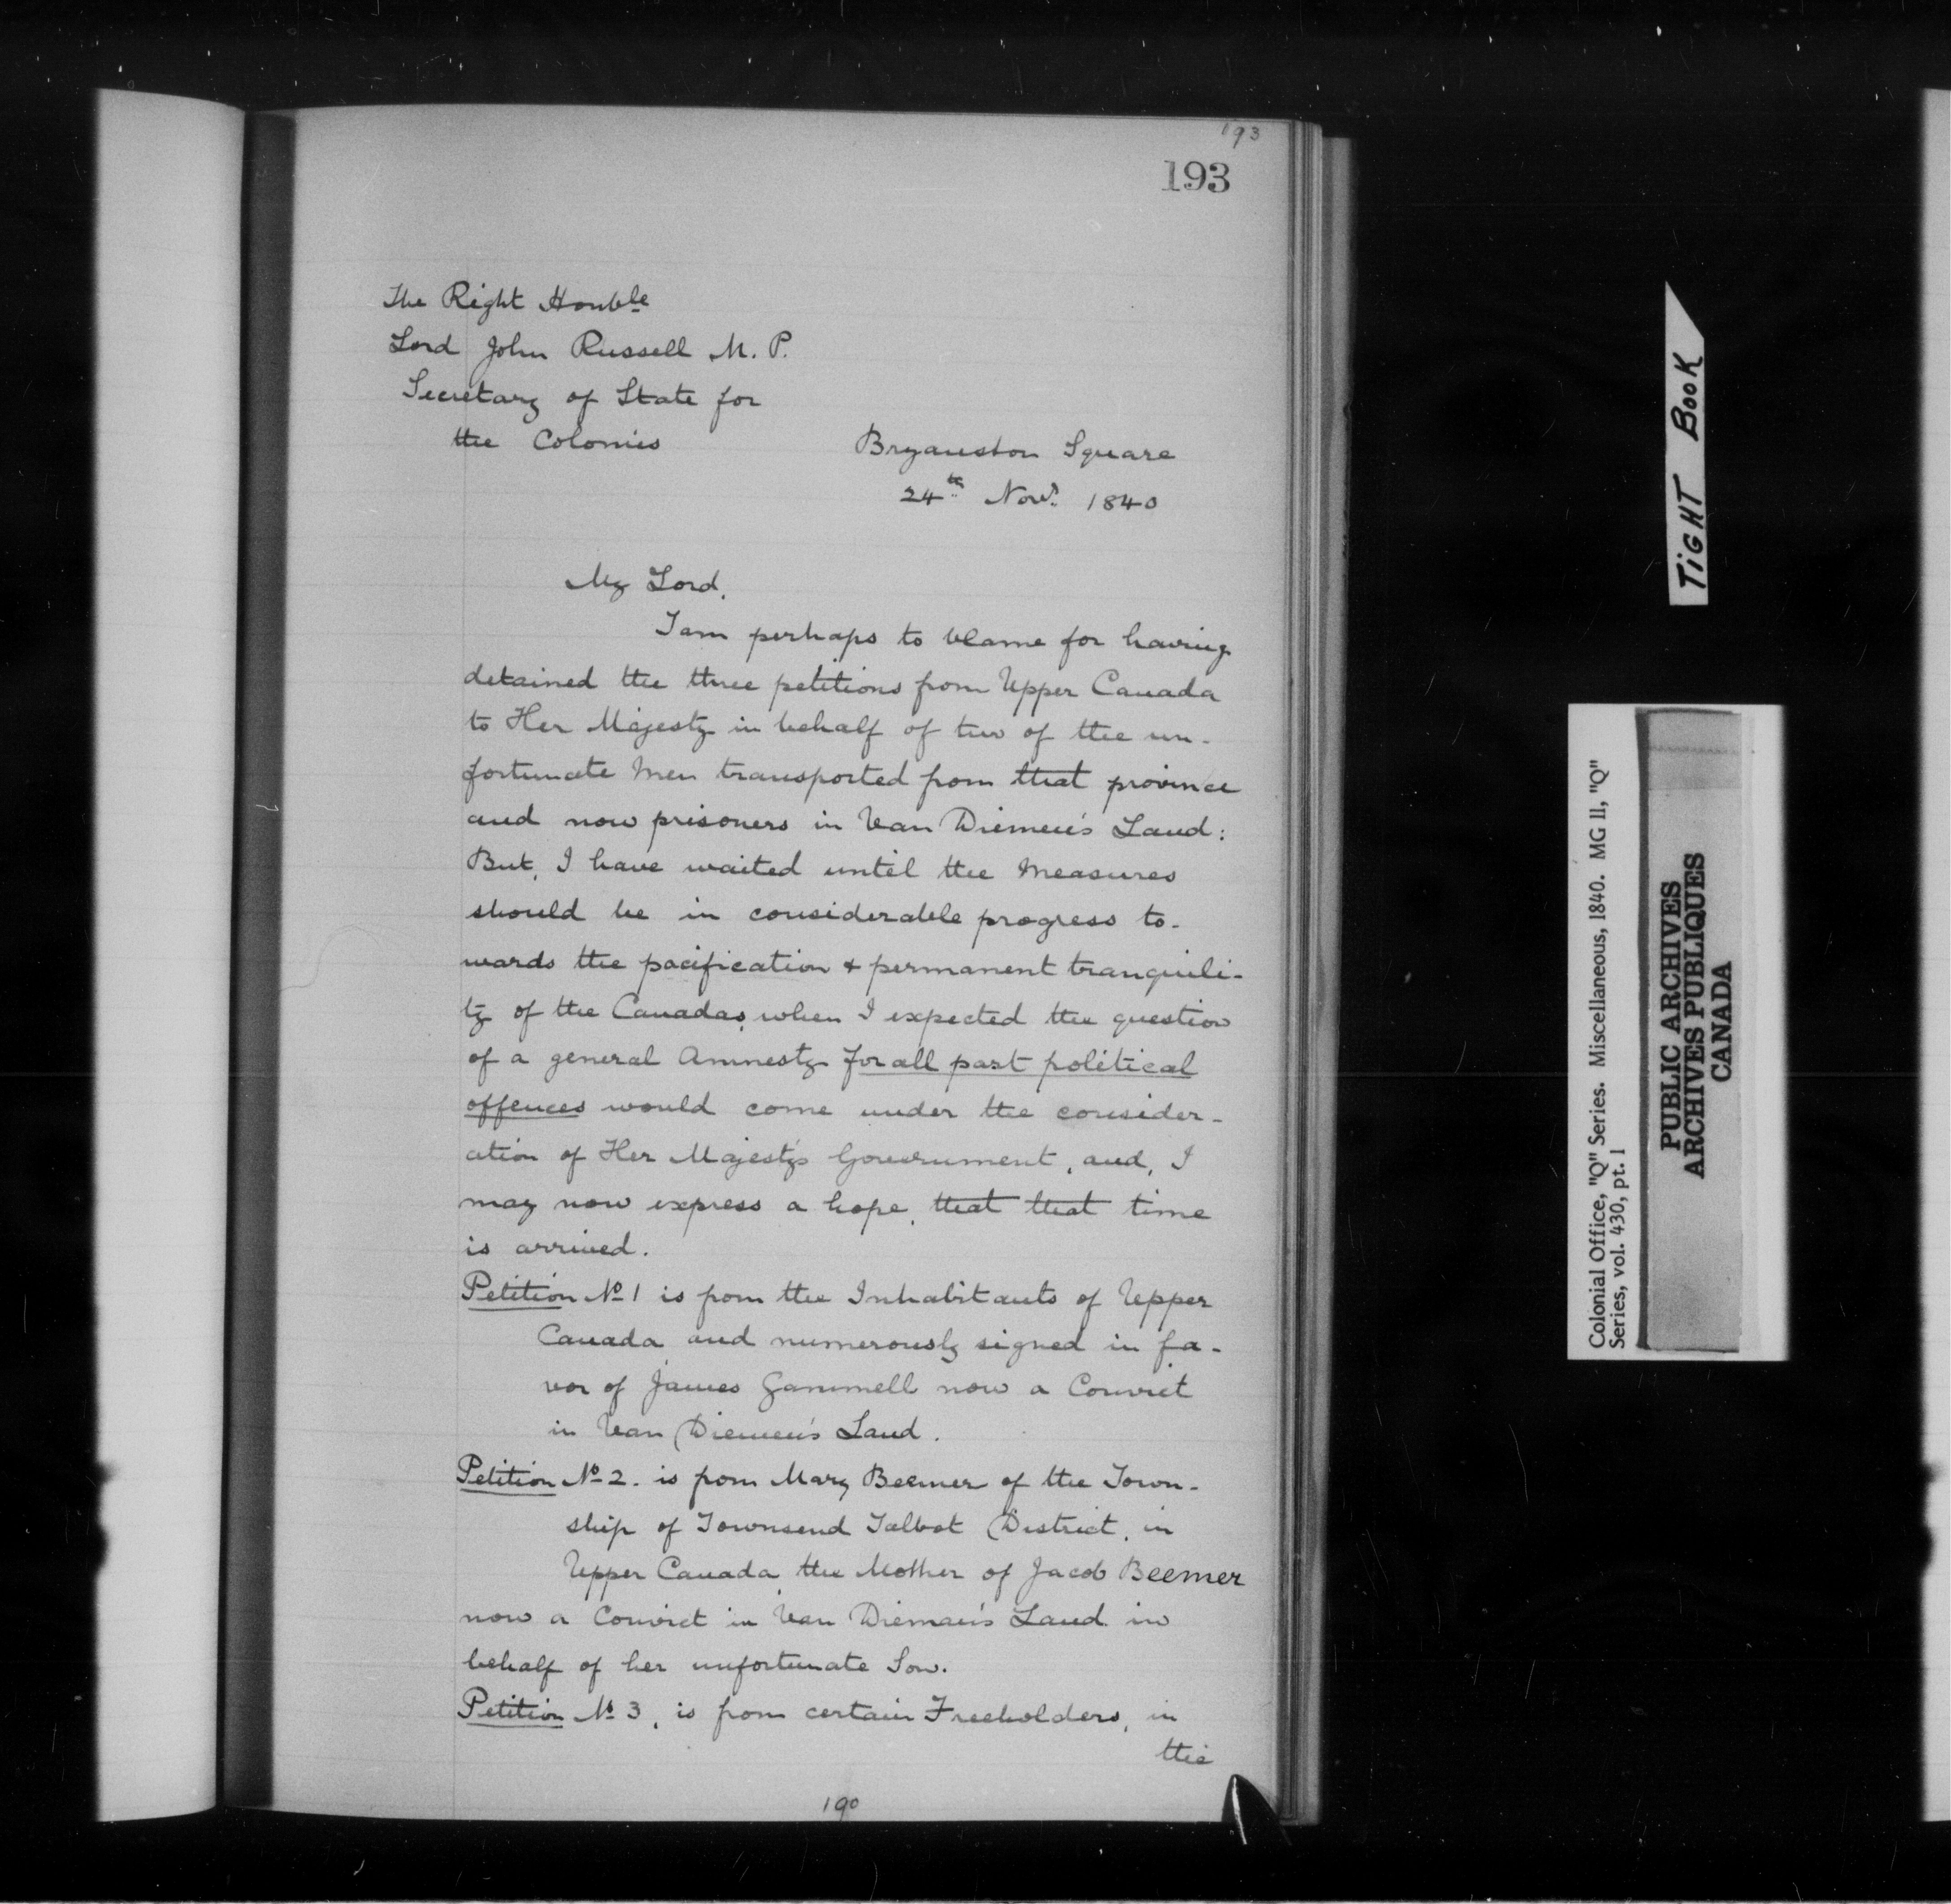 193
193
The Right Honble
Lord John Russell M. P.
Secretary of State for
the Colonies
Bryanston Square
24th Novr. 1840
My Lord,
I am perhaps to blame for having
detained the three petitions from Upper Canada
to Her Majesty in behalf of two of the un-
fortunate men transported from that province
and now prisoners in Van Diemen's Land:
But, I have waited until the measures
should be in considerable progress to-
wards the pacification & permanent tranquili-
ty of the Canadas, when I expected the question
of a general Amnesty for all past political
offences would come under the consider-
ation of Her Majesty's Government, and, I
may now express a hope, that that time
is arrived.
Petition No 1 is from the Inhabitants of Upper
Canada and numerously signed in fa-
vor of James Gammell now a Convict
in Van Diemen's Land.
Petition No 2. is from Mary Beemer of the Town-
ship of Townsend Talbot District, in
Upper Canada, the Mother of Jacob Beemer
now a Convict in Van Dieman's Land in
behalf of her unfortunate Son.
Petition No 3, is from certain Freeholders, in
the
190
TiGHT BOOK
Colonial Office, "Q" Series. Miscellaneous, 1840. MG 11, "Q"
Series, vol. 430, pt. 1
PUBLIC ARCHIVES
ARCHIVES PUBLIQUES
CANADA